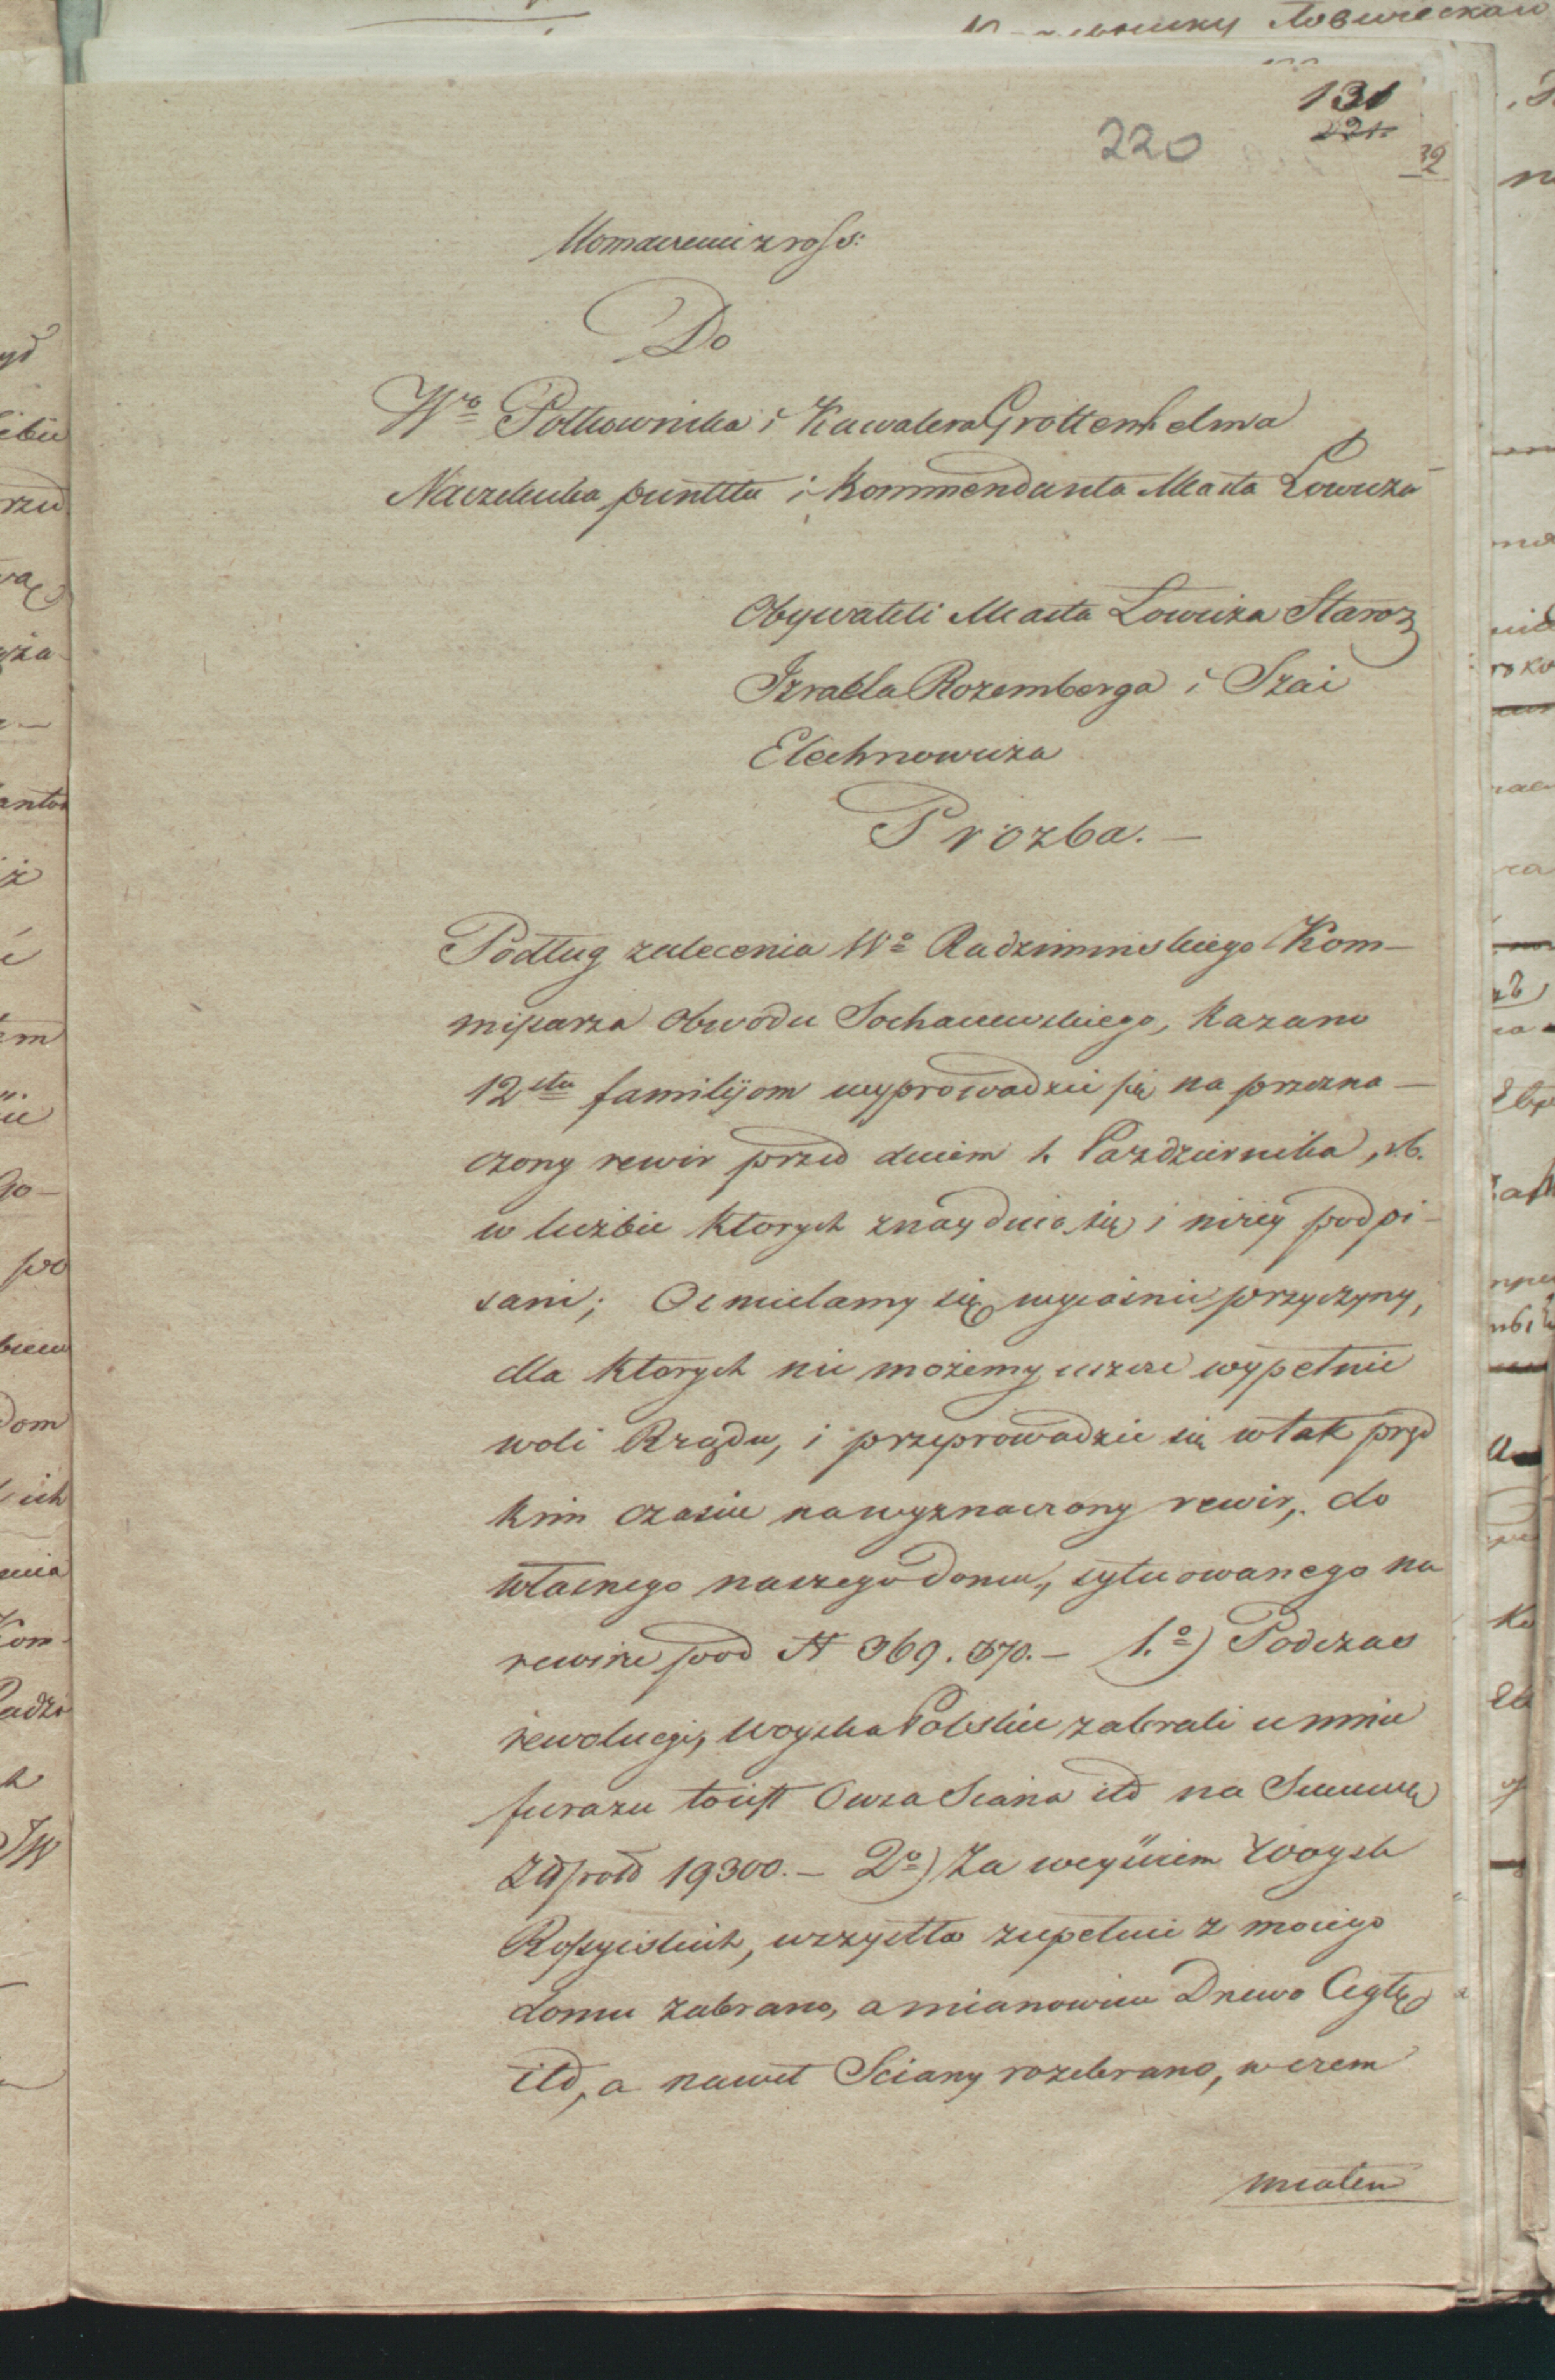 131
221.
220
32
tłomaczenie z ross:
Do
Wo Półkownika i Kawalera Grottenhelma
Naczelnika punktu i Kommendanta Miasta Łowicza
Obywateli Miasta Łowicza Staroz
Izraela Rozemberga i Szai
Elechnowicza
Prozba. —
Podług zalecenia Wo Radziminskiego Kom-
missarza Obwodu Sochaczewskiego, kazano
12stu familijom wyprowadzić się na przezna-
czony rewir przed dniem 1. Pazdziernika, r.b.
w liczbie ktorych znayduie się i niżey podpi-
sani; Osmielamy się wyiasnić przyczyny,
dla ktorych nie możemy uszcze wypełnić
woli Rządu, i przeprowadzić się w tak pręd
kim czasie na wyznaczony rewir, do
własnego naszego domu, sytuowanego na
rewirze pod N 369. 370. — 1.o) Podczas
rewolucyi, woyska Polskie zabrali u mnie
furazu toiest Owsa Siana itd na Summę
Złpold 19300. — 2o) Za weyściem Woysk
Rossyiskich, wszystko zupełnie z moiego
domu zabrano, a mianowicie Drzewo Cegłę
itd, a nawet Sciany rozebrano, w czem
miałem